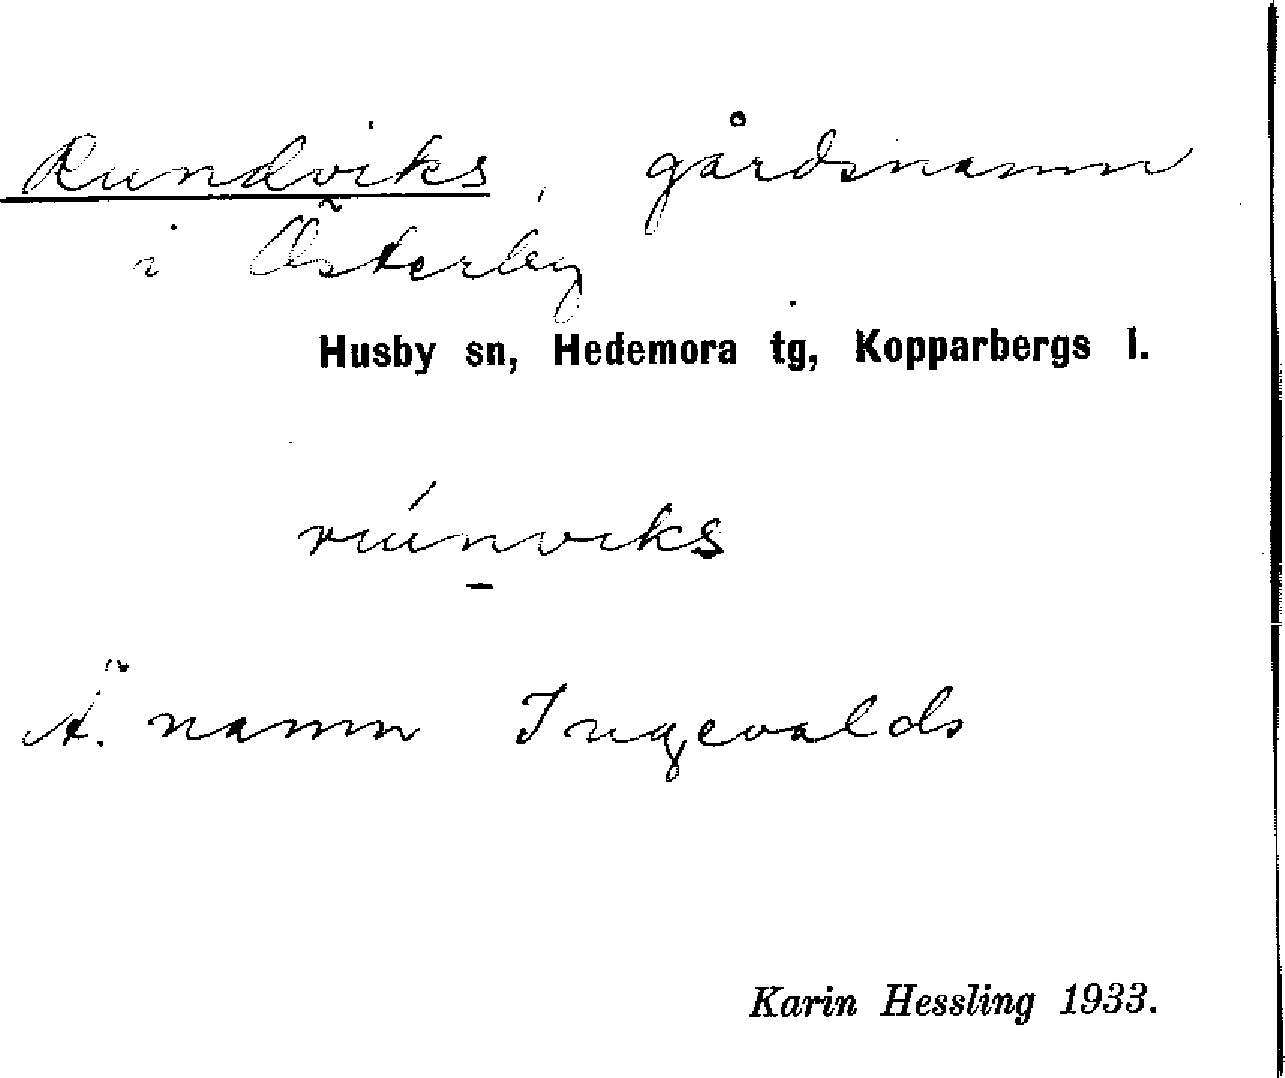 Rundviks, gårdsnamn
i Österby
Husby sn, Hedemora tg, Kopparbergs l.
Ä. namn Ingevalds
Karin Hessling 1933.